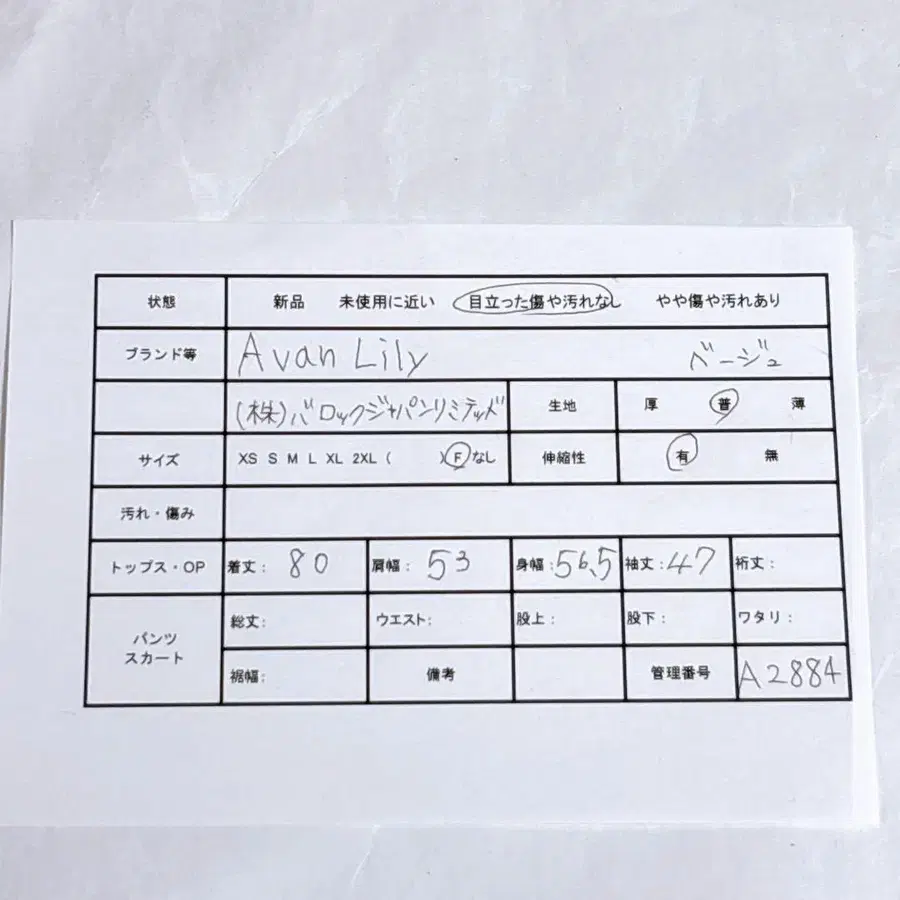 状態 新品 未使用に近い 目立った傷や汚れなし やや傷や汚れあり
ブランド等 Avan Lily ベージュ
(株)バロックジャパンリミテッド 生地 厚 普 薄
サイズ XS S M L XL 2XL ( ) F なし 伸縮性 有 無
汚れ・傷み
トップス・OP 着丈: 80 肩幅: 53 身幅: 56.5 袖丈: 47 裄丈:
パンツ スカート 総丈: ウエスト: 股上: 股下: ワタリ:
裾幅: 備考 管理番号 A2884